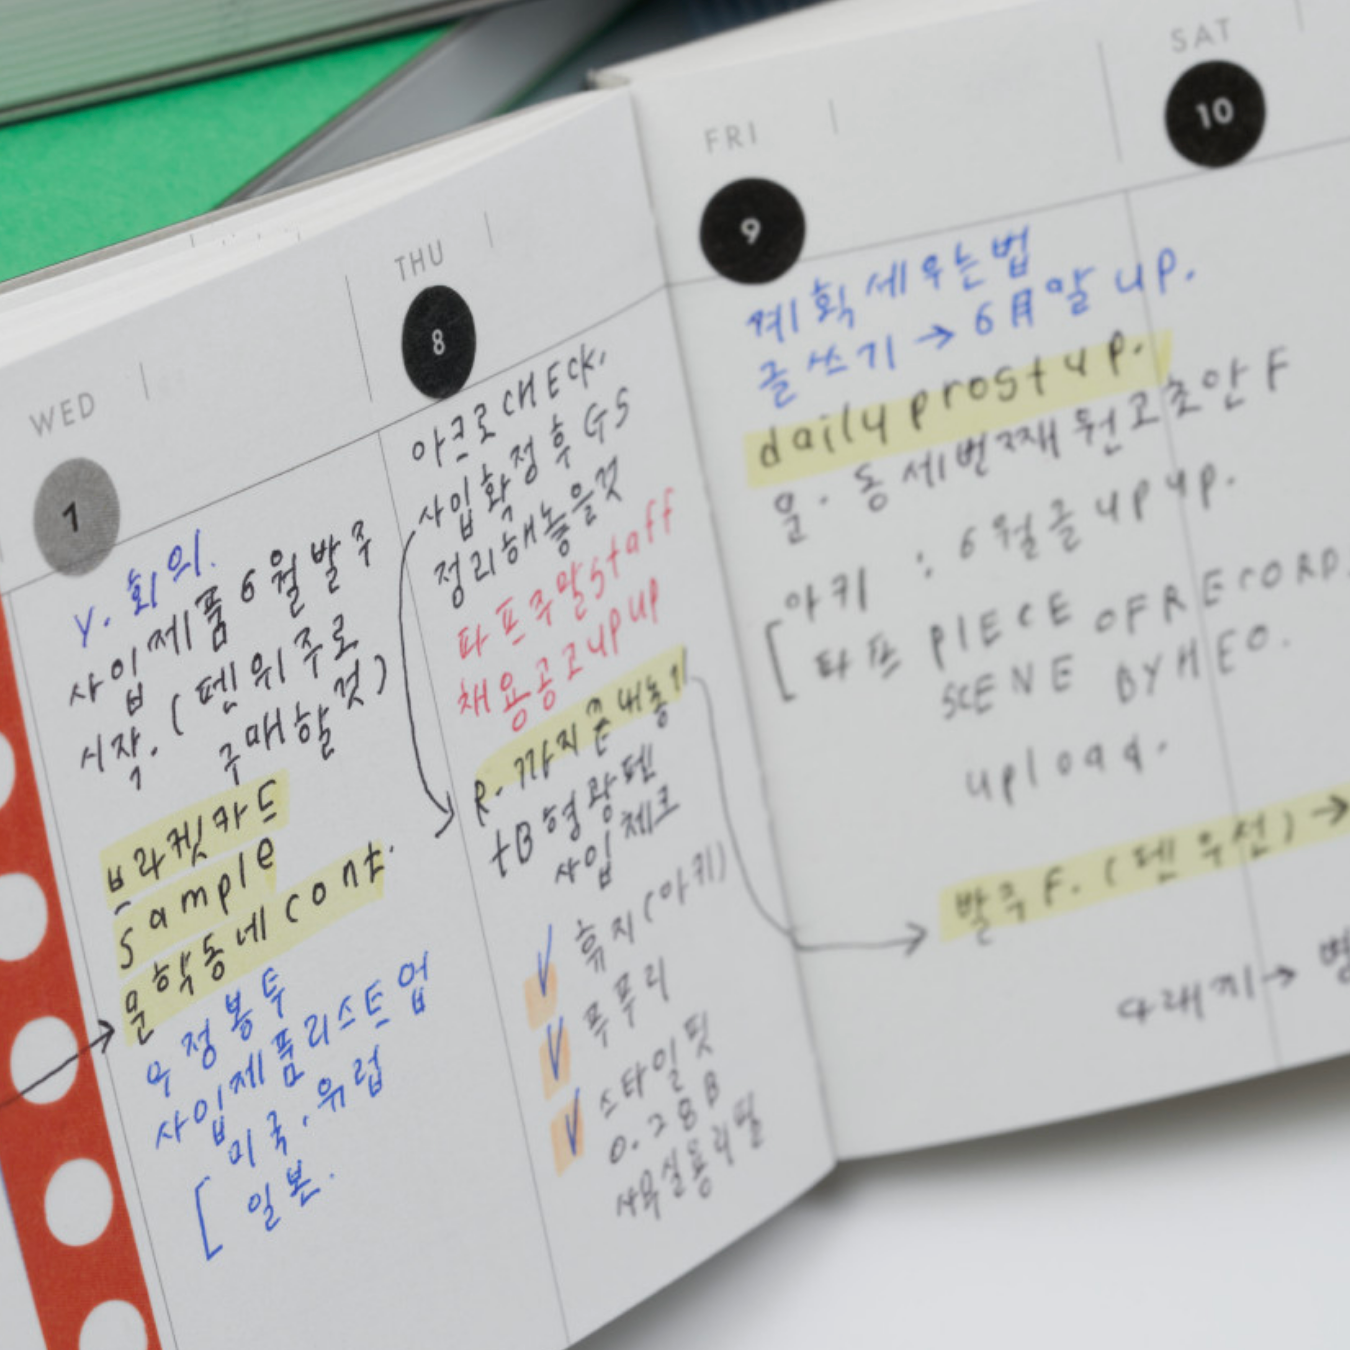 WED
7
Y. 회의.
사입제품 6월 발주
시작. (펜 위주로
구매할 것)
브라켓카드
Sample
문학동네 cont.
우정봉투
사입제품리스트업
[ 미국. 유럽
일본.
THU
8
아크로 cHEck.
사입확정 후 GS
정리해놓을것
타프주말staff
채용공고upup
R. 까지존내놓기
tB형광펜
사입체크
✓ 휴지(아키)
✓ 푸푸리
✓ 스타일핏
0.28 B
사무실용리필
FRI
9
계획세우는법
글쓰기 → 6月말 up.
daily prost up.
문.동 세번째 원고초안 F
[ 아키 : 6월글 upup.
타프 PIECE OF RECORD.
SCENE BY HEO.
upload.
발주 F. (펜우선) →
다래끼 →
SAT
10